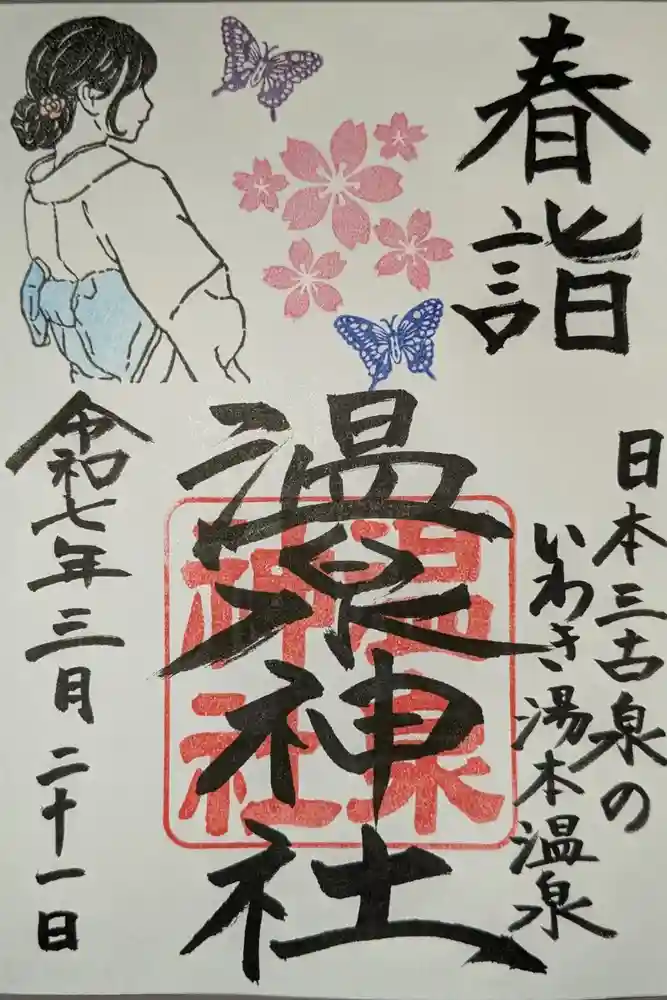 春詣
日本三古泉の
いわき湯本温泉
温泉神社
温泉
神社
令和七年三月二十一日